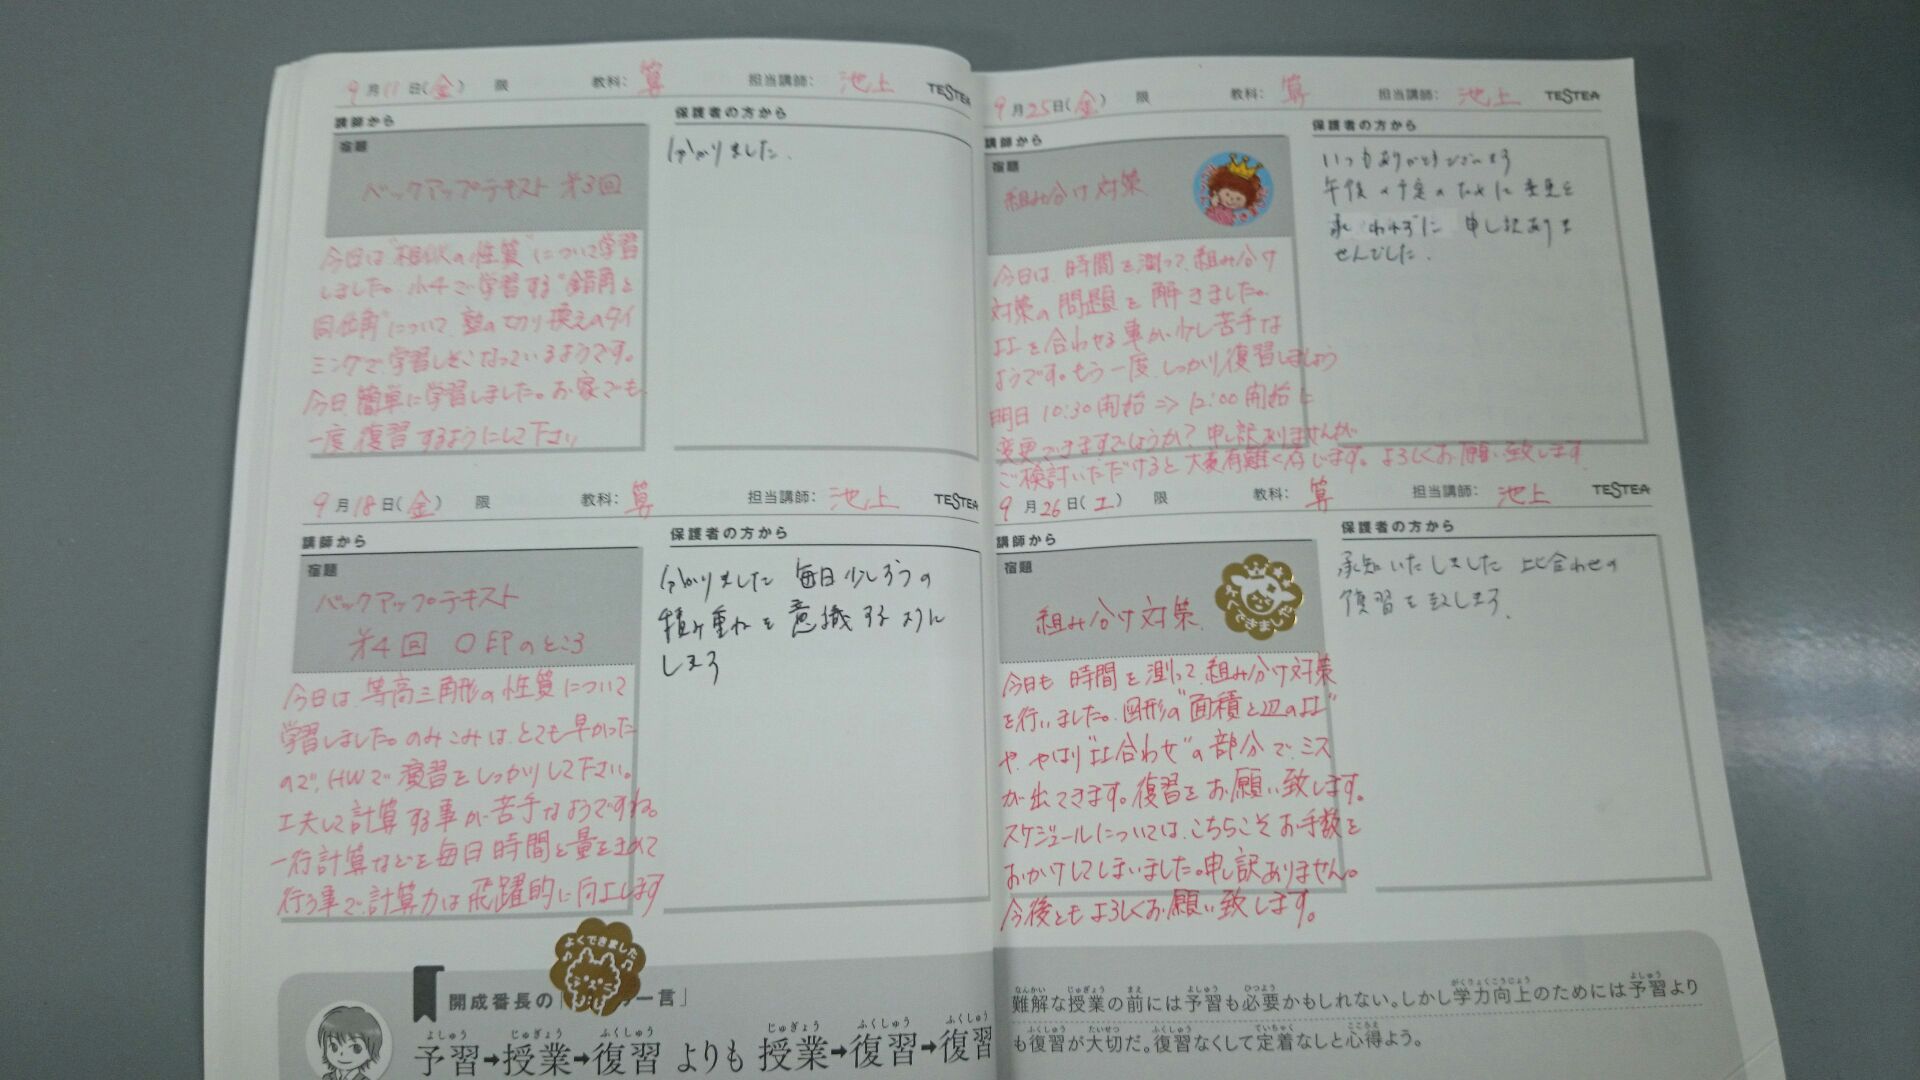 9月11日(金) 限 教科: 算 担当講師: 池上 TESTEA
講師から
宿題
バックアップテキスト 第3回
今日は"相似の性質"について学習
しました。小4で学習する"錯角と
同位角"について、塾の切り換えのタイ
ミングで学習しそこなっているようです。
今日、簡単に学習しました。お家でも、
一度復習するようにして下さい
保護者の方から
分かりました。
9月18日(金) 限 教科: 算 担当講師: 池上 TESTEA
講師から
宿題
バックアップテキスト
第4回 〇印のところ
今日は、等高三角形の性質について
学習しました。のみこみは、とても早かった
ので、HWで演習をしっかりして下さい。
工夫して計算する事が苦手なようですね。
一行計算などを毎日時間と量を決めて
行う事で、計算力は飛躍的に向上します
保護者の方から
分かりました 毎日少しずつの
積み重ねを意識するように
します
よくできました
開成番長の「 一言」
予習→授業→復習 よりも 授業→復習→復習
よしゅう じゅぎょう ふくしゅう じゅぎょう ふくしゅう ふくしゅう
9月25日(金) 限 教科: 算 担当講師: 池上 TESTEA
講師から
宿題
組み分け対策
今日は、時間を測って、組み分け
対策の問題を解きました。
比を合わせる事が、少し苦手な
ようです。もう一度、しっかり復習しましょう
明日 10:30開始⇒12:00開始に
変更できますでしょうか？申し訳ありませんが、
ご検討いただけると大変有難く存じます。よろしくお願い致します
保護者の方から
いつもありがとうございます
午後の予定のために変更を
申し訳ありま
せんでした。
9月26日(土) 限 教科: 算 担当講師: 池上 TESTEA
講師から
宿題
組み分け対策
よくできました
今日も時間を測って、組み分け対策
を行いました。図形の"面積と辺の比"
や、やはり"比合わせ"の部分で、ミス
が出てきます。復習をお願い致します。
スケジュールについては、こちらこそお手数を
おかけしてしまいました。申し訳ありません。
今後ともよろしくお願い致します。
保護者の方から
承知いたしました 比合わせの
復習を致します。
なんかい じゅぎょう まえ よしゅう ひつよう がくりょくこうじょう よしゅう
難解な授業の前には予習も必要かもしれない。しかし学力向上のためには予習より
ふくしゅう たいせつ ふくしゅう ていちゃく こころえ
も復習が大切だ。復習なくして定着なしと心得よう。